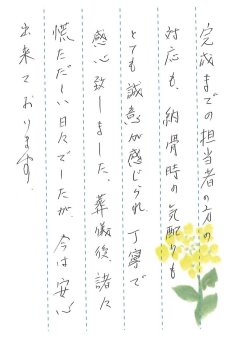 完成までの担当者の方の
対応も、納骨時の気配りも
とても誠意が感じられ、丁寧で
感心致しました。葬儀後、諸々
慌ただしい日々でしたが、今は安心
出来ております。